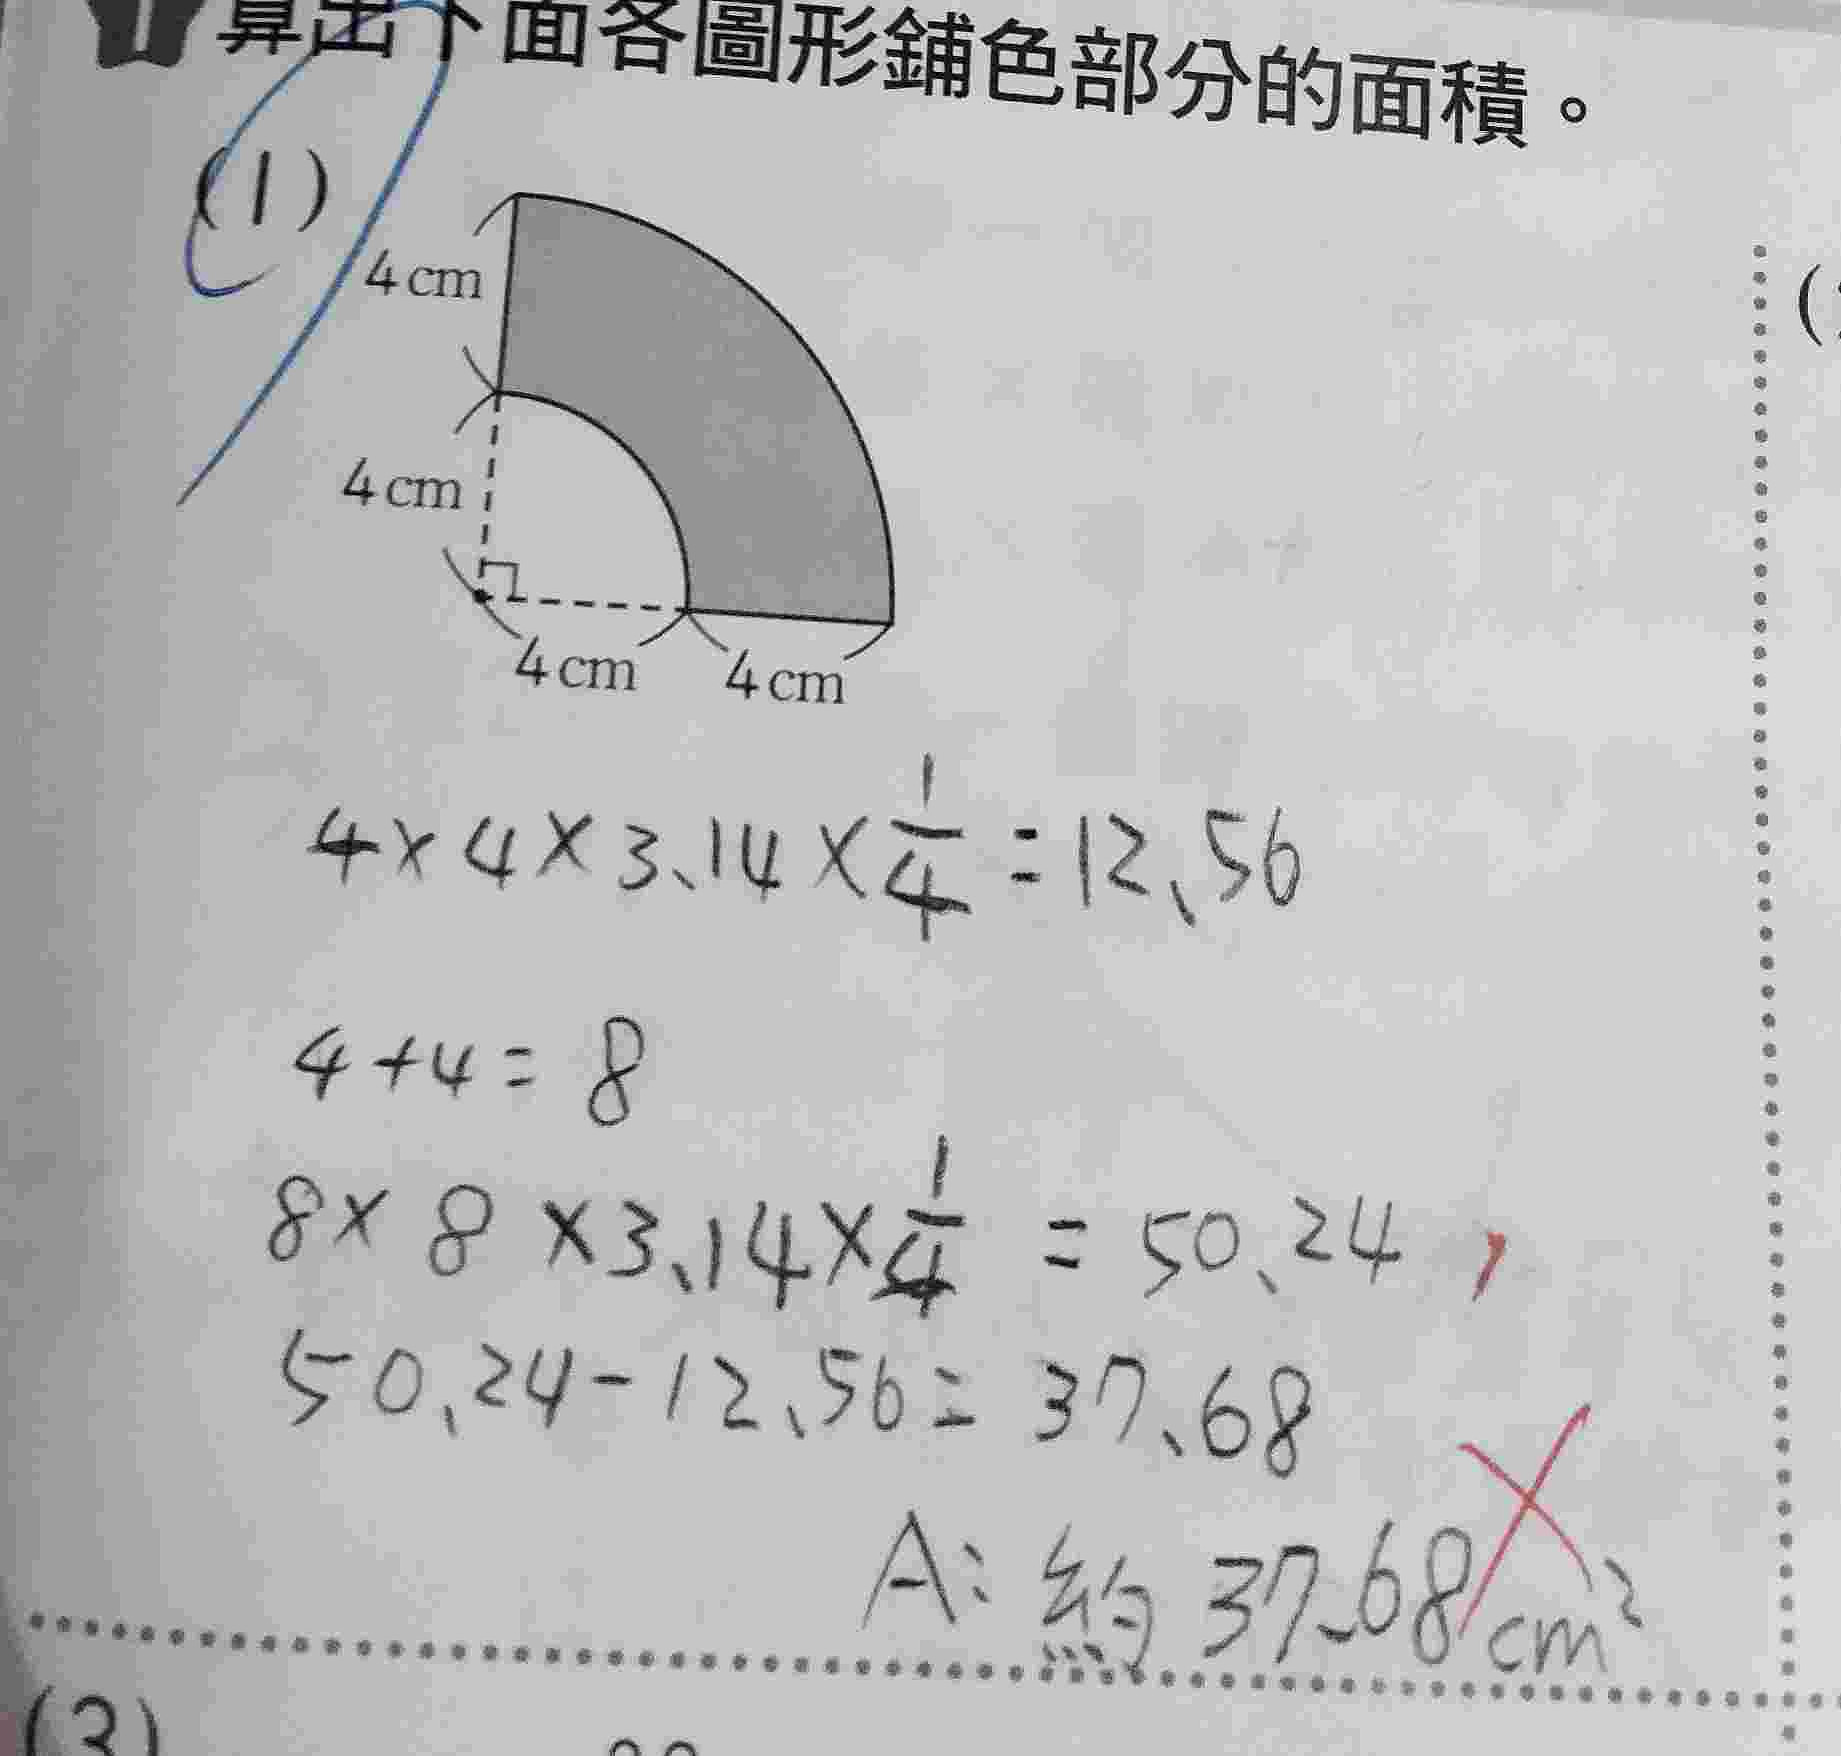 算出下面各圖形鋪色部分的面積。
(1)
4cm
4cm
4cm 4cm
4×4×3.14×1/4=12.56
4+4=8
8×8×3.14×1/4=50.24
50.24-12.56=37.68
A:約37.68cm²
(3)